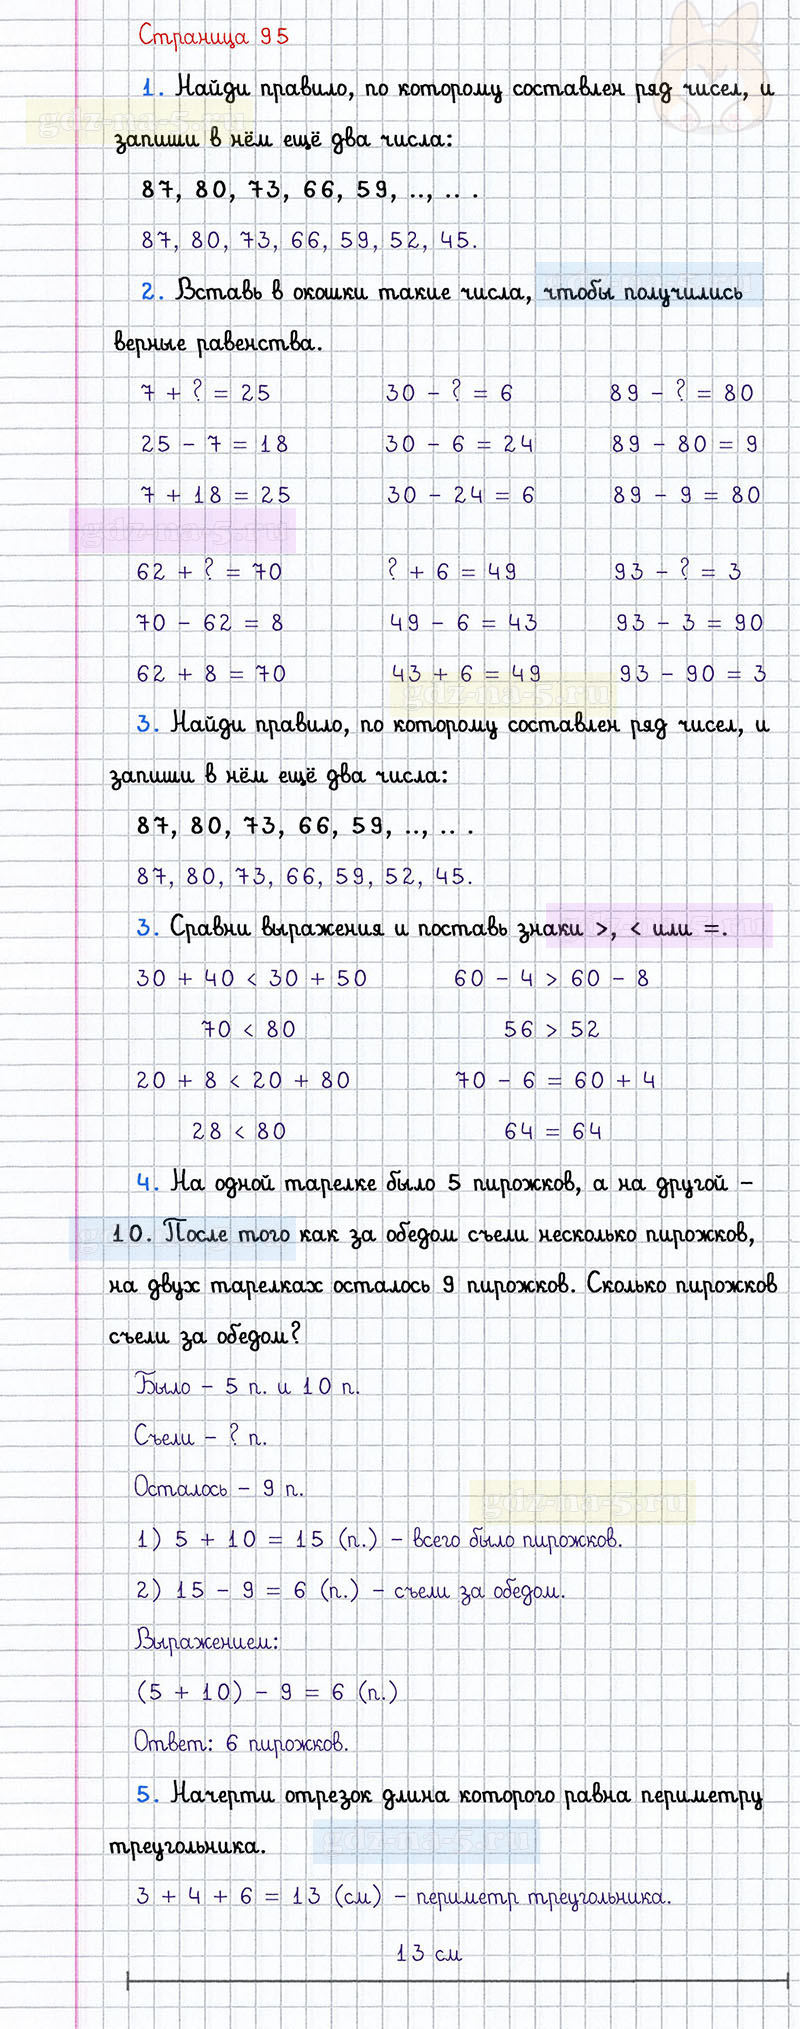 Страница 95
1. Найди правило, по которому составлен ряд чисел, и
gdz-na-5.ru
запиши в нём ещё два числа:
87, 80, 73, 66, 59, .., .. .
87, 80, 73, 66, 59, 52, 45.
gdz-na-5.ru
2. Вставь в окошки такие числа, чтобы получились
верные равенства.
7 + ? = 25 30 - ? = 6 89 - ? = 80
25 - 7 = 18 30 - 6 = 24 89 - 80 = 9
7 + 18 = 25 30 - 24 = 6 89 - 9 = 80
gdz-na-5.ru
62 + ? = 70 ? + 6 = 49 93 - ? = 3
70 - 62 = 8 49 - 6 = 43 93 - 3 = 90
62 + 8 = 70 43 + 6 = 49 93 - 90 = 3
gdz-na-5.ru
3. Найди правило, по которому составлен ряд чисел, и
запиши в нём ещё два числа:
87, 80, 73, 66, 59, .., .. .
87, 80, 73, 66, 59, 52, 45.
gdz-na-5.ru
3. Сравни выражения и поставь знаки >, < или =.
30 + 40 < 30 + 50 60 - 4 > 60 - 8
70 < 80 56 > 52
20 + 8 < 20 + 80 70 - 6 = 60 + 4
28 < 80 64 = 64
4. На одной тарелке было 5 пирожков, а на другой -
gdz-na-5.ru
10. После того как за обедом съели несколько пирожков,
на двух тарелках осталось 9 пирожков. Сколько пирожков
съели за обедом?
Было - 5 п. и 10 п.
Съели - ? п.
Осталось - 9 п.
gdz-na-5.ru
1) 5 + 10 = 15 (п.) - всего было пирожков.
2) 15 - 9 = 6 (п.) - съели за обедом.
Выражением:
(5 + 10) - 9 = 6 (п.)
Ответ: 6 пирожков.
5. Начерти отрезок длина которого равна периметру
треугольника.
gdz-na-5.ru
3 + 4 + 6 = 13 (см) - периметр треугольника.
13 см